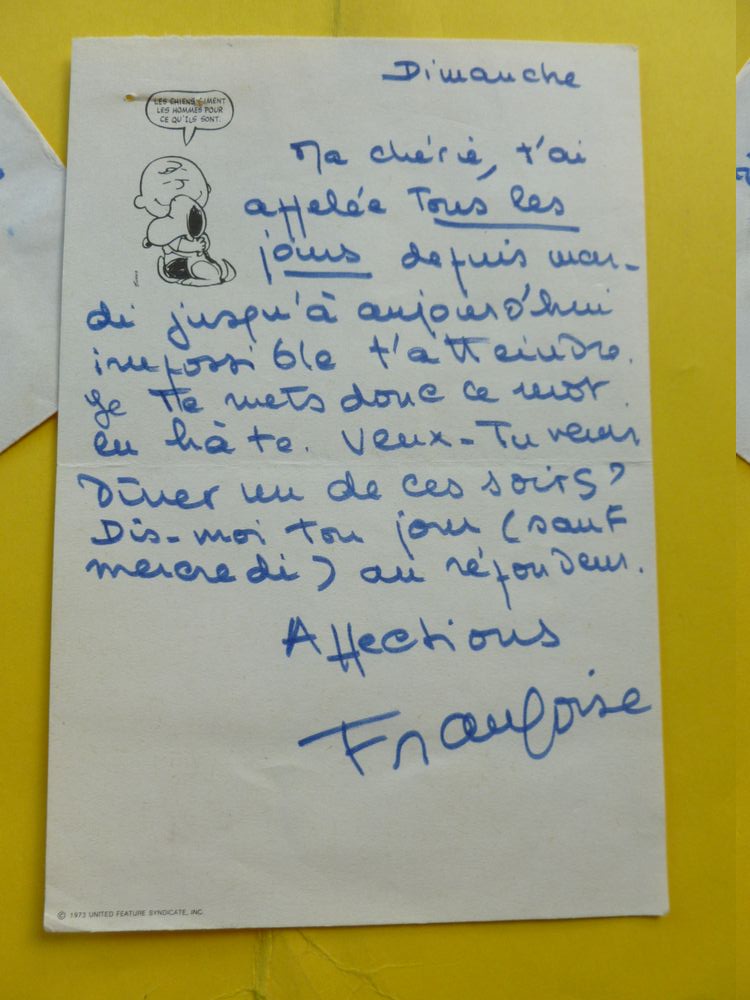 Dimanche
LES CHIENS AIMENT
LES HOMMES POUR
CE QU'ILS SONT.
Ma chérie, t'ai
appelée Tous les
jours depuis mar-
di jusqu'à aujourd'hui
impossible t'atteindre.
Je Te mets donc ce mot
en hâte. Veux-Tu venir
Dîner un de ces soirs?
Dis-moi ton jour (sauf
mercredi) au répondeur.
Affections
Françoise
© 1973 UNITED FEATURE SYNDICATE, INC.